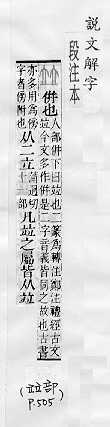 說文解字
段注本
併也人部併下曰竝也二篆為轉注鄭注禮經古文
竝今文多作併是二字音義皆同之故也古書
亦多用為傍
字者傍附也从二立蒲迥切
十一部凡竝之屬皆从竝
(竝部)
P.505